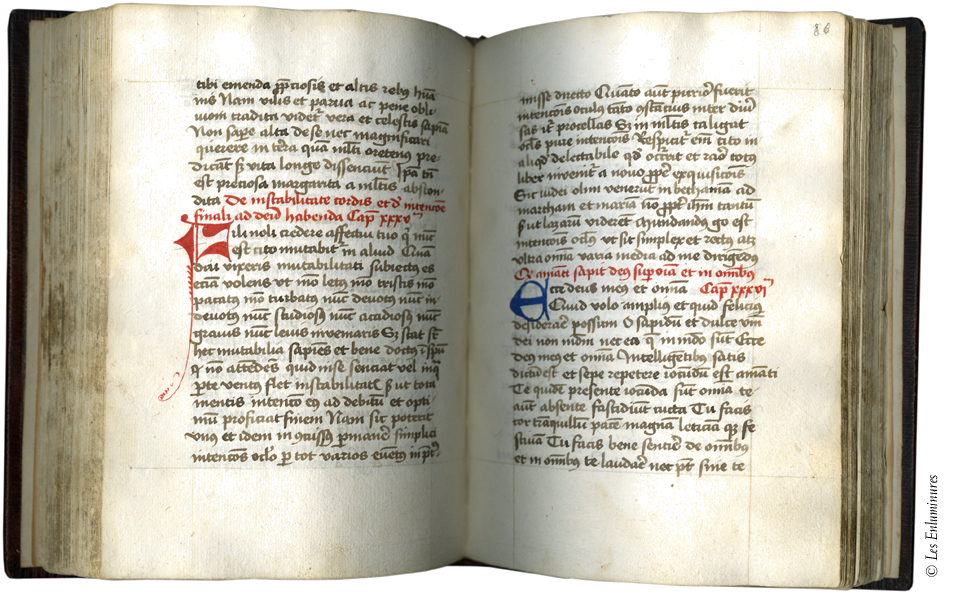 tibi emenda p̄ p̄ciosis et altis rebꝫ hūa-
nis Nam vilis et parua ac pene obli-
uioni tradita videt᷑ vera et celestis sapiā
Non saꝑe alta de se nec magnificari
querere in terra quā mlti oretenꝰ pre-
dicāt sꝫ vita longe dissenciūt Ipā tn̄
est preciosa margarita a mltis abscon-
dita De instabilitate cordis et de intencōe
finali ad deū habenda Capᵐ xxxvᵐ
Fili noli credere affectui tuo qͥ nūc
est cito mutabit᷑ in aliud Quā
diu vixeris mutabilitati subiectꝰ es
eciā volens vt mō letꝰ mō tristis mō
pacatꝰ mō turbatꝰ nūc deuotꝰ nūc in-
deuotꝰ nūc studiosꝰ nūc acidiosꝰ nūc
grauis nūc leuis inueniaris Sꝫ stat suꝑ
hec mutabilia sapiēs et bene doctꝰ ī spū
nō attēdēs quid in se senciat vel in qͣ
ꝑte ventꝰ flet instabilitatꝭ sꝫ vt tota
mentis intencō eiꝰ ad debitū et opti-
mū proficiat finem Nam sic poterit
vnꝰ et idem incōcussꝰ ꝑmaner̄ simplici
intencōis oclō ꝑ tot varios euētꝰ in me
86
misse directo Quāto aūt purior fuerit
intencōis oculꝰ tāto ꝯstātius inter diuer̄
sas itᷣ procellas Sꝫ in mltis caligat
oclꝰ pure intencōis Respicit᷑ em̄ cito in
aliqͥd delectabile qd̓ occ̓rit et raro totꝰ
liber inuenit᷑ a neuo ꝓprie exquisicōis
Sic iudei olim venerūt in bethaniā ad
martham et mariā nō ꝓpt̓ ihm̄ tantū
sꝫ vt lazarū viderēt Mundandꝰ ḡo est
intencōis oclꝰ vt sit simplex et rectꝰ atqꝫ
vltra omīa varia media ad me dirigēdꝰ
Qꝫ amāti sapit deꝰ suꝑ oīa et in oīnibꝫ
Ecce deus meꝰ et omīa Capᵐ xxxviᵐ
Quid volo ampliꝰ et quid feliciꝰ
desiderare possum O sapidū et dulce vbū
dei non mdm nec ea q̄ in mdo sūt Ecce
deꝰ meꝰ et omīa Intelligētibꝫ satis
dictū est et sepe repetere iocūdū est amāti
Te quidē presente iocūda sūt omīa te
aūt absente fastidiūt cūcta Tu facis
cor tranqͥllū et pacē magnā leticiā qꝫ fe-
stiuā Tu facis bene sentire de omībꝫ
et in omībꝫ te laudare nec pt̄ sine te
© Les Enluminures